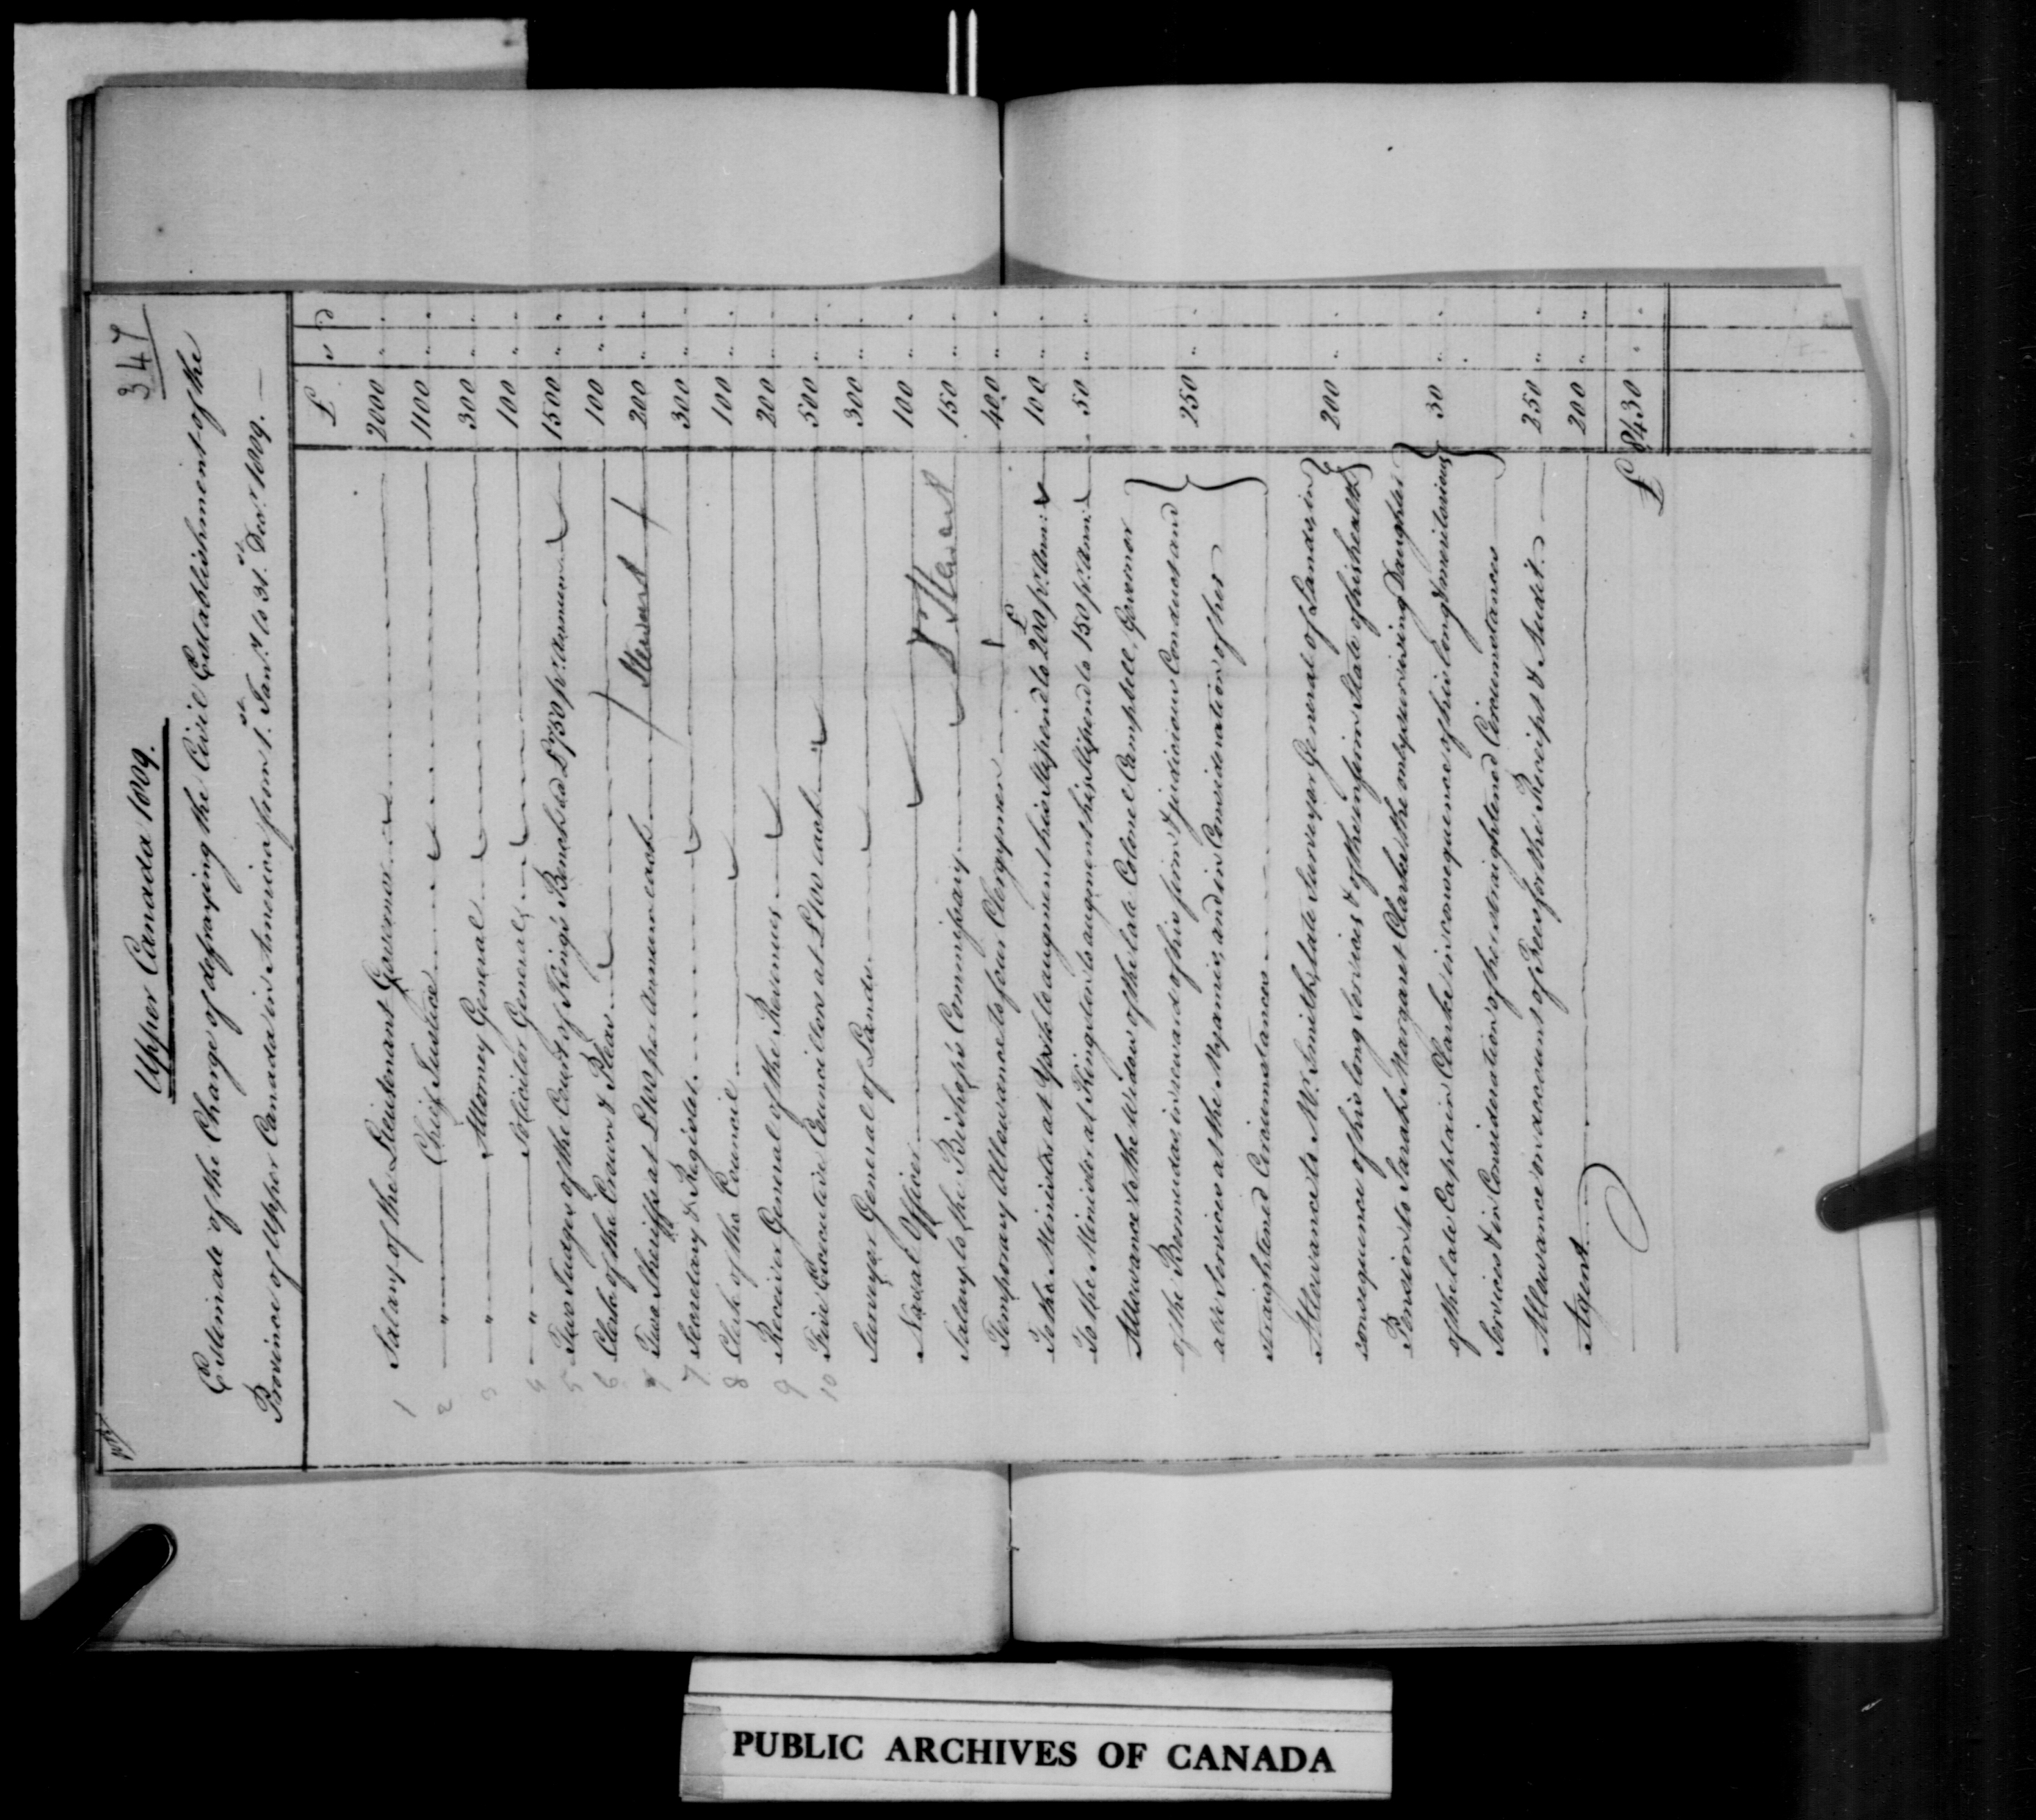 347
Upper Canada 1809.
Estimate of the Charge of defraying the Civil Establishment of the
Province of Upper Canada in America from 1st Jany. to 31st Decr. 1809. —
£ s d
1 Salary of the Lieutenant Governor 2000 " "
2 " Chief Justice 1100 " "
3 " Attorney General 300 " "
4 " Solicitor General 100 " "
5 Two Judges of the Court of King's Bench at £750 pr. annum 1500 " "
6 Clerk of the Crown & Pleas 100 " "
Two Sheriffs at £100 per Annum each 200 " "
Stewart
7 Secretary & Register 300 " "
8 Clerk of the Council 100 " "
9 Receiver General of the Revenues 200 " "
10 Five Executive Councillors at £100 each 500 " "
Surveyor General of Lands 300 " "
Naval Officer 100 " "
Salary to the Bishop's Commissary 150 " "
Dr Stewart
Temporary Allowance to four Clergymen 400 " "
To the Minister at York to augment his Stipend to £200 pr. Ann: 100 " "
To the Minister at Kingston to augment his Stipend to 150 pr. Ann: 50 " "
Allowance to the Widow of the late Colonel Campbell, Governor
of the Bermudas, in reward of his firm & judicious Conduct and
able Services at the Myamis, and in Consideration of her
straightened Circumstances 250 " "
Allowance to Mr. Smith, late Surveyor General of Lands, in
consequence of his long Services & of the infirm State of his health 200 " "
Pension to Sarah Margaret Clarke the only surviving Daughter
of the late Captain Clarke in consequence of his long & meritorious
Services & in Consideration of her straightened Circumstances 30 " "
Allowance on account of Fees for the Receipt & Audit 250 " "
Agent 200 " "
£ 8430 " "
PUBLIC ARCHIVES OF CANADA